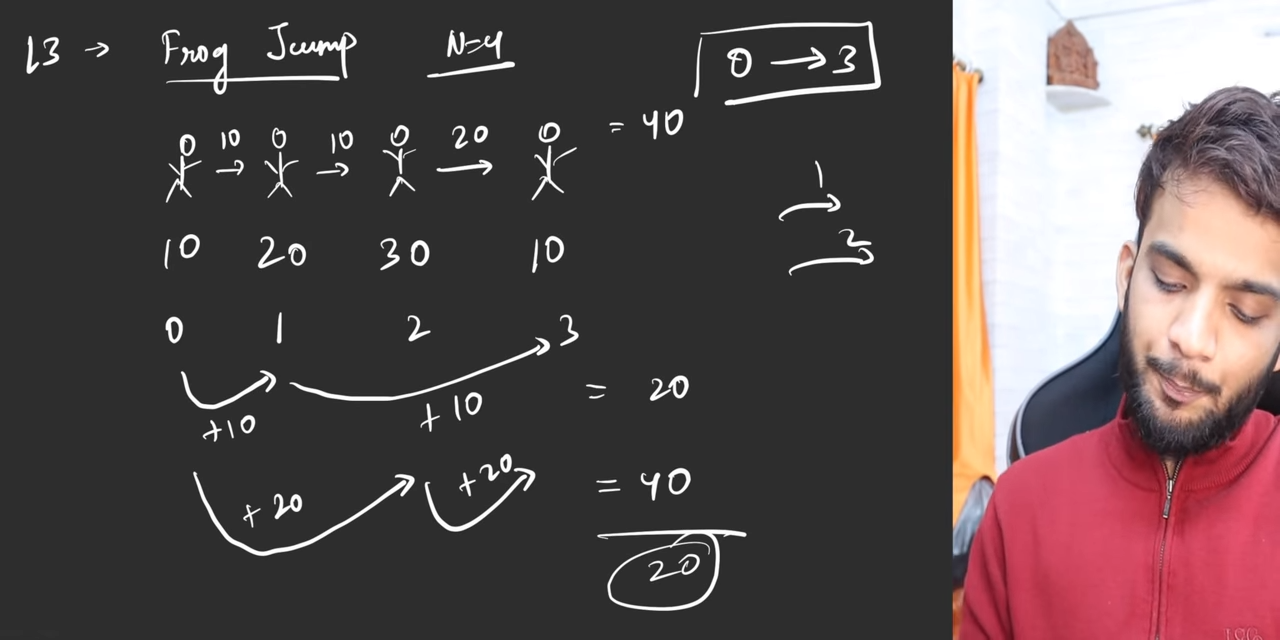 L3 → Frog Jump N=4 0 → 3
10 10 20 = 40
1
10 20 30 10
2
0 1 2 3
+10 +10 = 20
+20 +20 = 40
20